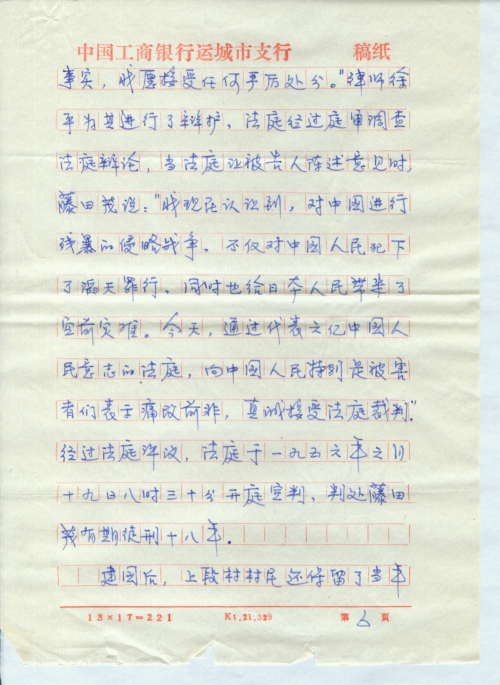 中国工商银行运城市支行 稿纸
事实，我愿接受任何严厉处分。"律师徐
平为其进行了辩护，法庭经过庭审调查
法庭辩论，当法庭让被告人陈述意见时，
藤田茂说："我现在认识到，对中國进行
残暴的侵略战争。不仅对中國人民犯下
了滔天罪行。同时也给日本人民带来了
空前灾难。今天，通过代表六亿中國人
民意志的法庭，向中國人民特别是被害
者们表示痛改前非，真诚接受法庭裁判"。
经过法庭评议，法庭于一九五六年六月
十九日八时三十分开庭宣判，判处藤田
茂有期徒刑十八年。
建国后，上段村村民还保留了当年
13×17=221 K1.21.329 第 6 页